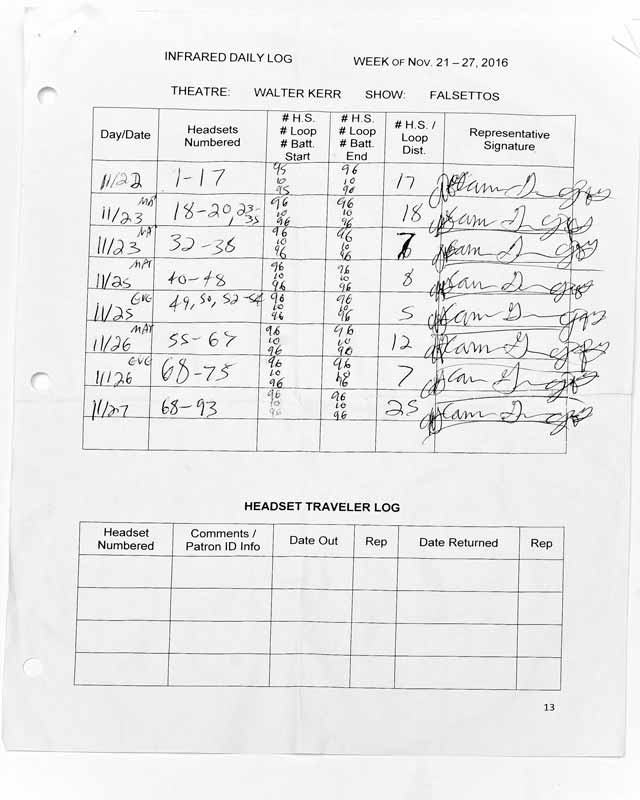 INFRARED DAILY LOG WEEK OF NOV. 21 – 27, 2016
THEATRE: WALTER KERR SHOW: FALSETTOS
Day/Date Headsets Numbered # H.S. # Loop # Batt. Start # H.S. # Loop # Batt. End # H.S. / Loop Dist. Representative Signature
11/22 1-17 95 10 95 96 10 96 17
11/23 MAT 18-20, 23-35 96 10 96 96 10 96 18
11/23 32-38 96 10 96 96 10 96 7
11/25 MAT 40-48 96 10 96 96 10 96 8
11/25 EVG 49, 50, 52-54 96 10 96 96 10 96 5
11/26 MAT 55-67 96 10 96 96 10 96 12
11/26 EVG 68-75 96 10 96 96 10 96 7
11/27 68-93 96 10 96 96 10 96 25
HEADSET TRAVELER LOG
Headset Numbered Comments / Patron ID Info Date Out Rep Date Returned Rep
13